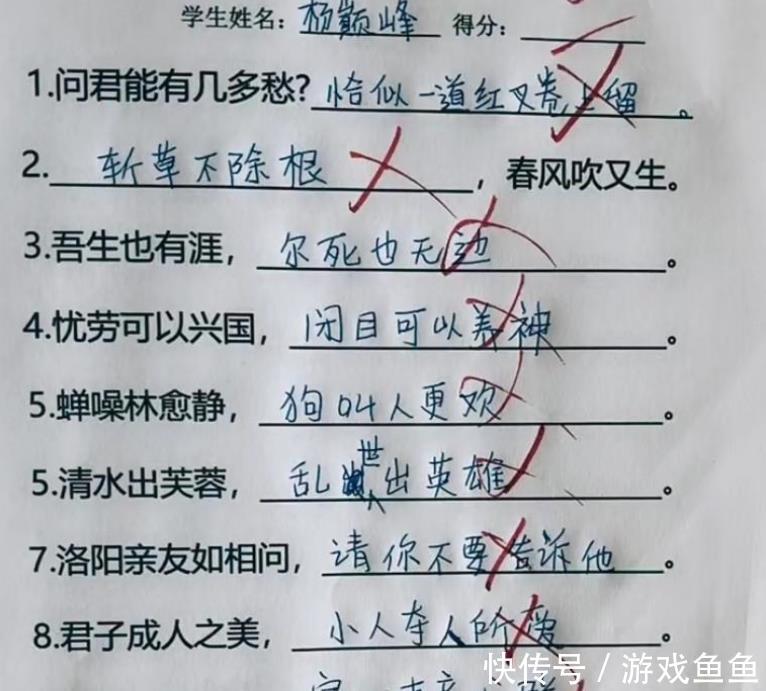 学生姓名：杨巅峰 得分：
1.问君能有几多愁？恰似一道红叉卷上留。
2.斩草不除根，春风吹又生。
3.吾生也有涯，尔死也无边。
4.忧劳可以兴国，闭目可以养神。
5.蝉噪林愈静，狗叫人更欢。
5.清水出芙蓉，乱世出英雄。
7.洛阳亲友如相问，请你不要告诉他。
8.君子成人之美，小人夺人所爱。
快传号/游戏鱼鱼